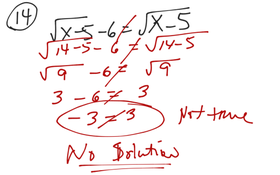 14
√x-5 - 6 ≠ √x-5
√14-5 - 6 ≠ √14-5
√9 - 6 ≠ √9
3 - 6 ≠ 3
-3 ≠ 3 Not true
No Solution